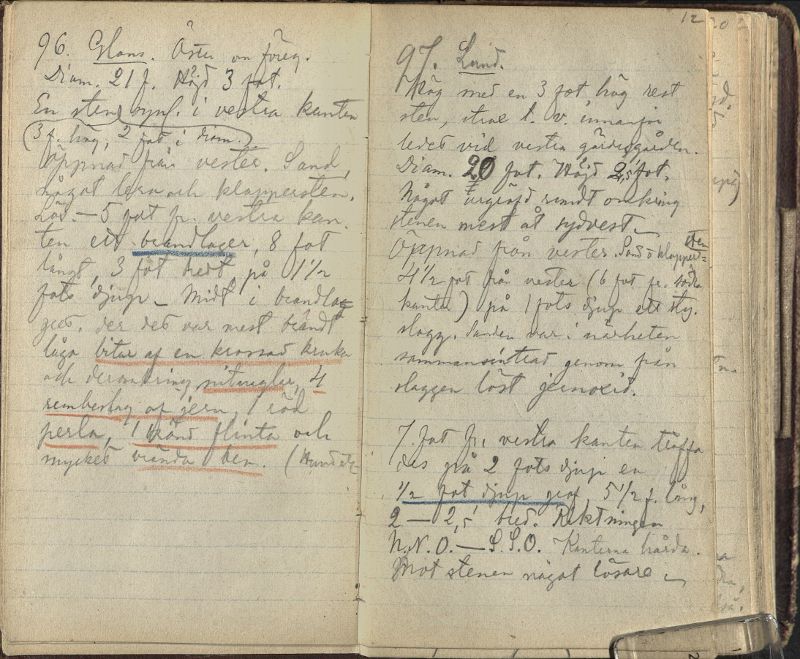 96. Glans. Öster om föreg.
Diam. 21 f. Höjd 3 fot.
En sten synl. i vestra kanten
(3 f. lång, 2 fot i diam.)
Öppnad från vester. Sand,
något lera och klappersten.
5 fot fr. vestra kan
ten ett brandlager, 8 fot
långt, 3 fot bredt, på 1 1/2
fots djup. Midt i brandla
gret, der det var mest brändt
lågo bitar af en krossad kruka
och deromkring nitnaglar, 4
rembeslag af jern, 1 röd
perla, 1 bränd flinta och
mycket brända ben. (Hund etc
12
97. Lund.
Hög med en 3 fot hög rest
sten, strax t. v. innanför
ledet vid vestra gärdesgården.
Diam. 20 fot. Höjd 2,5 fot.
Något urgräfd rundt omkring
stenen mest åt sydvest.
Öppnad från vester. Sand o klappersten
4 1/2 fot från vester (6 fot fr. södra
kanten) på 1 fots djup ett sty.
slagg. Sanden var i närheten
sammansintrad genom från
slaggen löst jernoxid.
7 fot fr. vestra kanten träffa
des på 2 fots djup en
1/2 fot djup graf, 5 1/2 f. lång,
2 — 2,5 bred. Riktningen
N.N.O. — S.S.O. Kanterna hårda.
Mot stenen något lösare